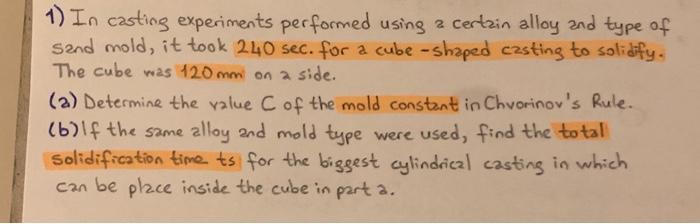 1) In casting experiments performed using a certain alloy and type of
sand mold, it took 240 sec. for a cube-shaped casting to solidify.
The cube was 120 mm on a side.
(a) Determine the value C of the mold constant in Chvorinov's Rule.
(b) If the same alloy and mold type were used, find the total
solidification time ts for the biggest cylindrical casting in which
can be place inside the cube in part a.